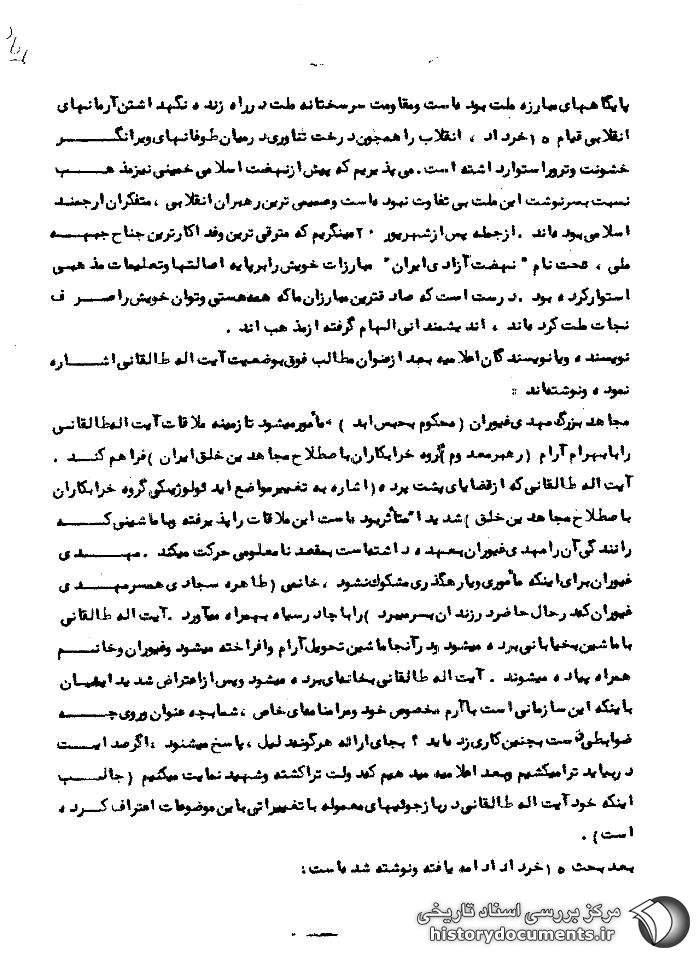 پایگاههای مبارزه ملت بوده است ومقاومت سرسختانه ملت در راه زنده نگهداشتن آرمانهای
انقلابی قیام ۱۵ خرداد ، انقلاب را همچون درخت تناوری در میان طوفانهای ویرانگر
خشونت وترور استوار داشته است. می پذیریم که پیش از نهضت اسلامی خمینی نیز مذهب
نسبت بسرنوشت این ملت بی تفاوت نبوده است وصمیمی ترین رهبران انقلابی ، متفکران ارجمند
اسلامی بوده اند . از جمله پس از شهریور ۲۰ مینگریم که مترقی ترین وفداکارترین جناح جبهه
ملی ، تحت نام " نهضت آزادی ایران " مبارزات خویش را بر پایه اصالتها وتعلیمات مذهبی
استوار کرده بود . درست است که صادقترین مبارزان ما که همه هستی وتوان خویش را صرف
نجات ملت کرده اند ، اندیشمندانی الهام گرفته از مذهب اند .
نویسنده ویا نویسندگان اعلامیه بعد از عنوان مطالب فوق بوضعیت آیت اله طالقانی اشاره
نموده ونوشته اند :
مجاهد بزرگ مهدی غیوران (محکوم بحبس ابد ) مأمور میشود تا زمینه ملاقات آیت اله طالقانی
را با بهرام آرام (رهبر معدوم گروه خرابکاران باصطلاح مجاهدین خلق ایران ) فراهم کند .
آیت اله طالقانی که از قضایای پشت پرده (اشاره به تغییر مواضع ایدئولوژیکی گروه خرابکاران
باصطلاح مجاهدین خلق ) شدیدا" متأثر بوده است این ملاقات را پذیرفته وبا ماشینی که
رانندگی آن را مهدی غیوران بعهده داشته است بمقصد نامعلومی حرکت میکند . مهدی
غیوران برای اینکه مأموری ویا رهگذری مشکوک نشود ، خانمی (طاهره سجادی همسر مهدی
غیوران که در حال حاضر در زندان بسر میبرد ) را با چادر سیاه بهمراه میآورد . آیت اله طالقانی
با ماشین بخیابانی برده میشود ودر آنجا ماشین تحویل آرام وافراخته میشود وغیوران وخانم
همراه پیاده میشوند . آیت اله طالقانی بخانه ای برده میشود وپس از اعتراض شدید ایشان
باینکه این سازمانی است با آرم مخصوص خود ومرامنامه ای خاص ، شما بچه عنوان وروی چه
ضوابطی دست بچنین کاری زده اید ؟ بجای ارائه هرگونه دلیل ، پاسخ میشنود ، اگر صدایت
در بیاید ترا میکشیم وبعد اعلامیه میدهیم که دولت ترا کشته وشهید نمایت میکنیم (جالب
اینکه خود آیت اله طالقانی در بازجوئیهای معموله با تغییراتی باین موضوعات اعتراف کرده
است) .
بعد بحث ۱۵ خرداد ادامه یافته ونوشته شده است:
مرکز بررسی اسناد تاریخی
historydocuments.ir